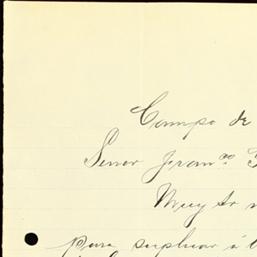 Campo de
Senor Franco
Muy Sr
para suplicar á